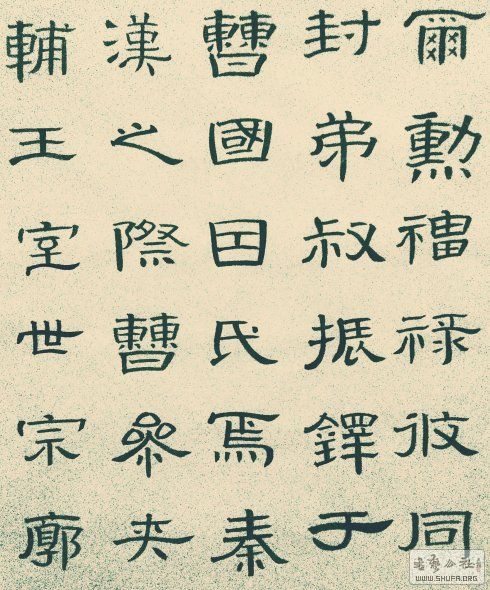 爾勳福祿攸同
封弟叔振鐸于
曹國因氏焉秦
漢之際曹參夾
輔王室世宗廓
書藝公社
WWW.SHUFA.ORG